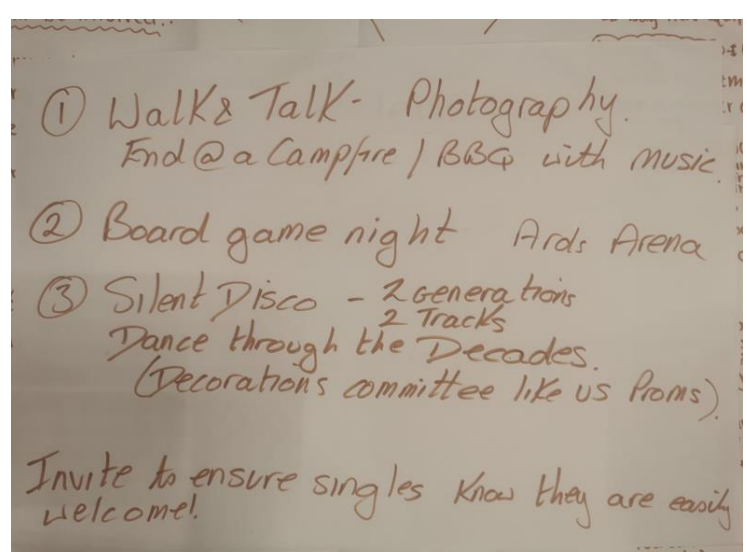 ① Walk & Talk - Photography.
End @ a Campfire / BBQ with music.
② Board game night Ards Arena
③ Silent Disco - 2 Generations
2 Tracks
Dance through the Decades.
(Decorations committee like US Proms).
Invite to ensure singles know they are easily
welcome!